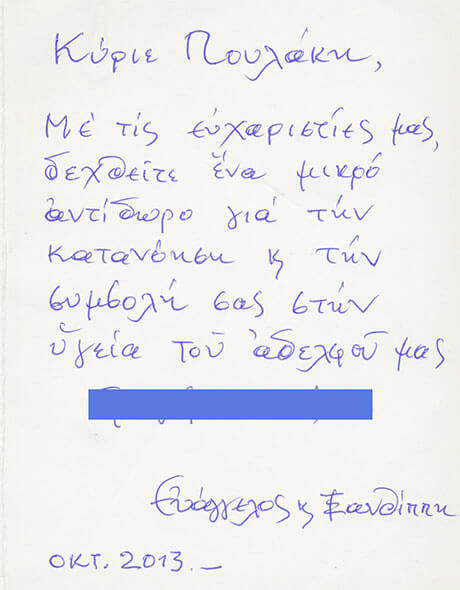 Κύριε Πουλάκη,
Μέ τίς εὐχαριστίες μας,
δεχθεῖτε ἕνα μικρό
ἀντίδωρο γιά τήν
κατανόηση κ τήν
συμβολή σας στήν
ὑγεία τοῦ ἀδελφοῦ μας
Εὐάγγελος κ Ξανθίππη
ΟΚΤ. 2013._